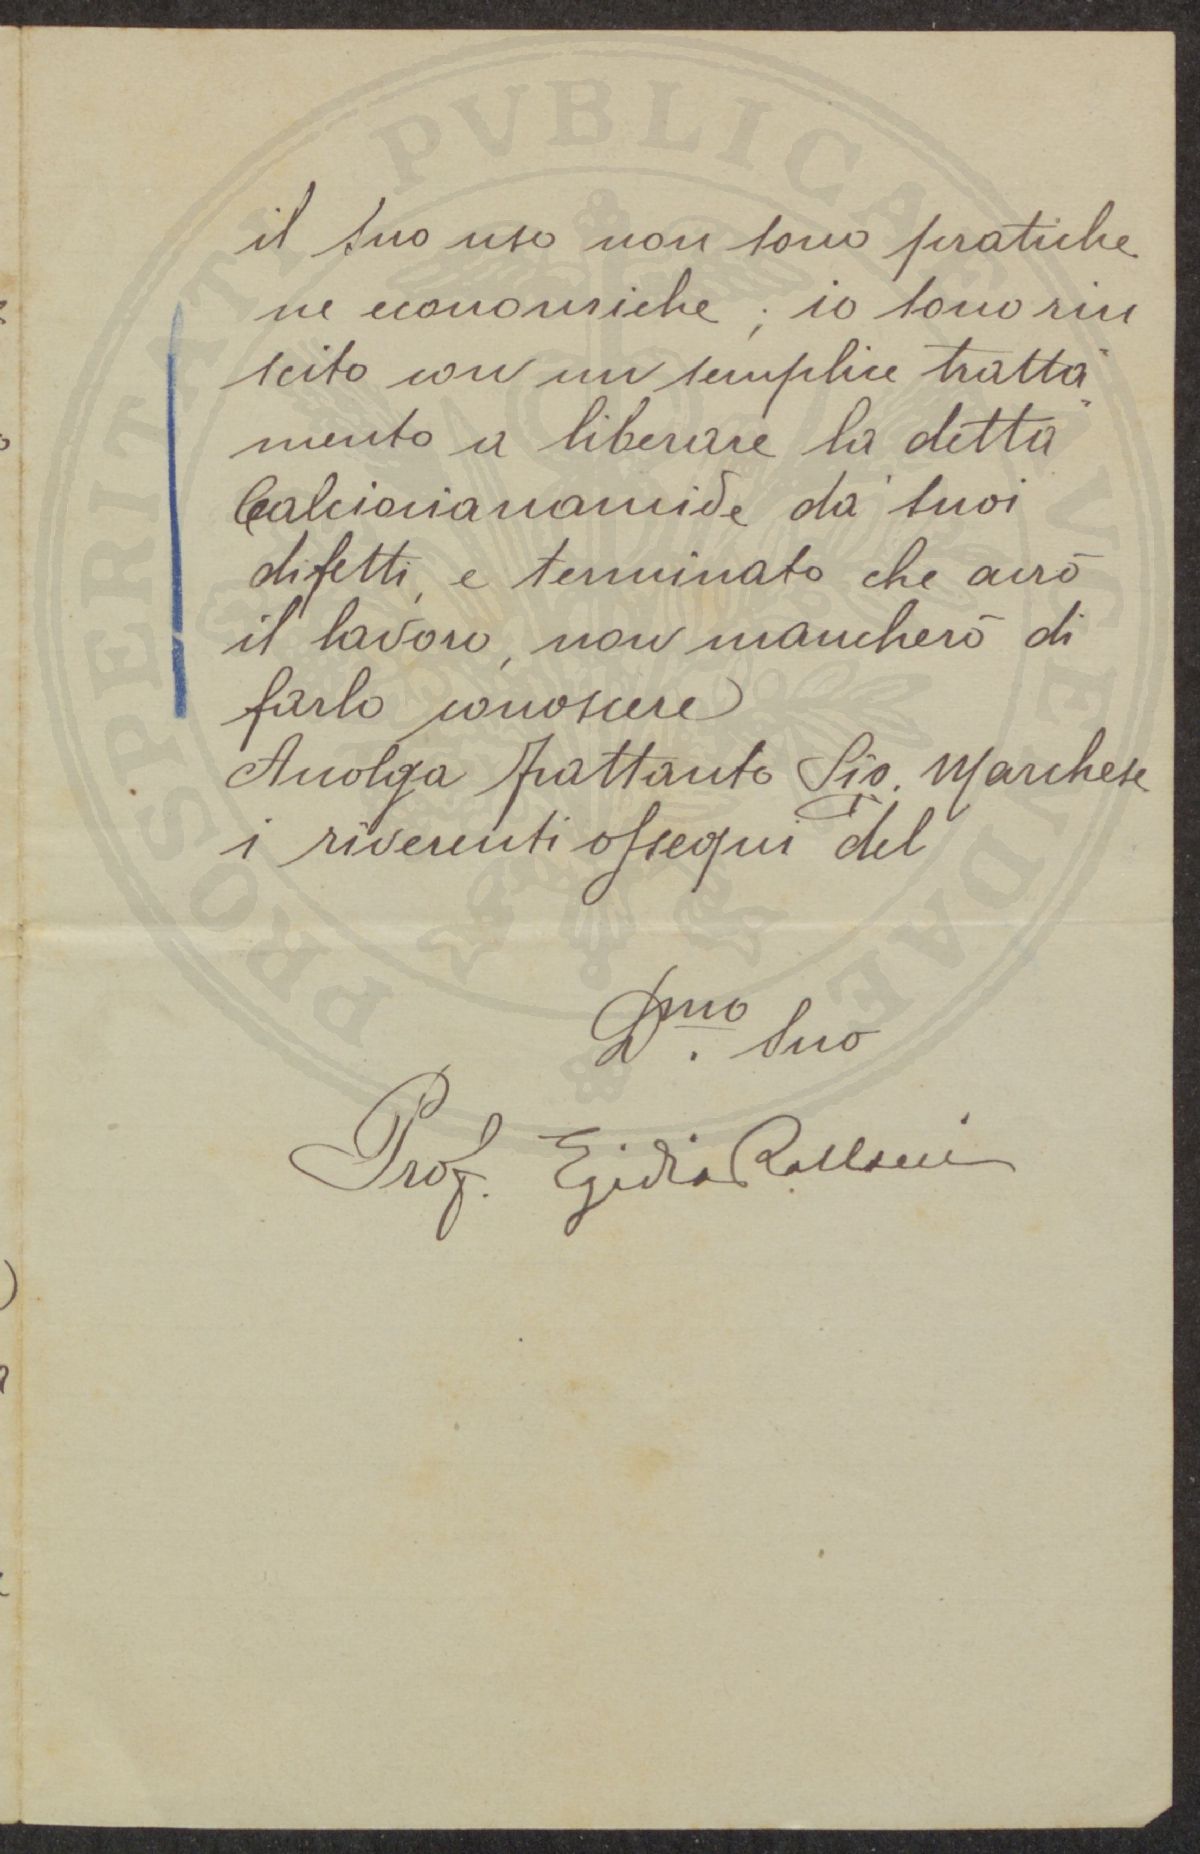 il suo uso non sono pratiche
ne economiche; io sono riu
scito con un semplice tratta"
mento a liberare la detta"
Calciocianamide da' suoi
difetti, e terminato che avrò
il lavoro, non mancherò di
farlo conoscere
Accolga frattanto Sig. Marchese
i riverenti ossequi del
Dmo. Suo
Prof. Egidio
PROSPERITATI PVBLICAE AVGENDAE